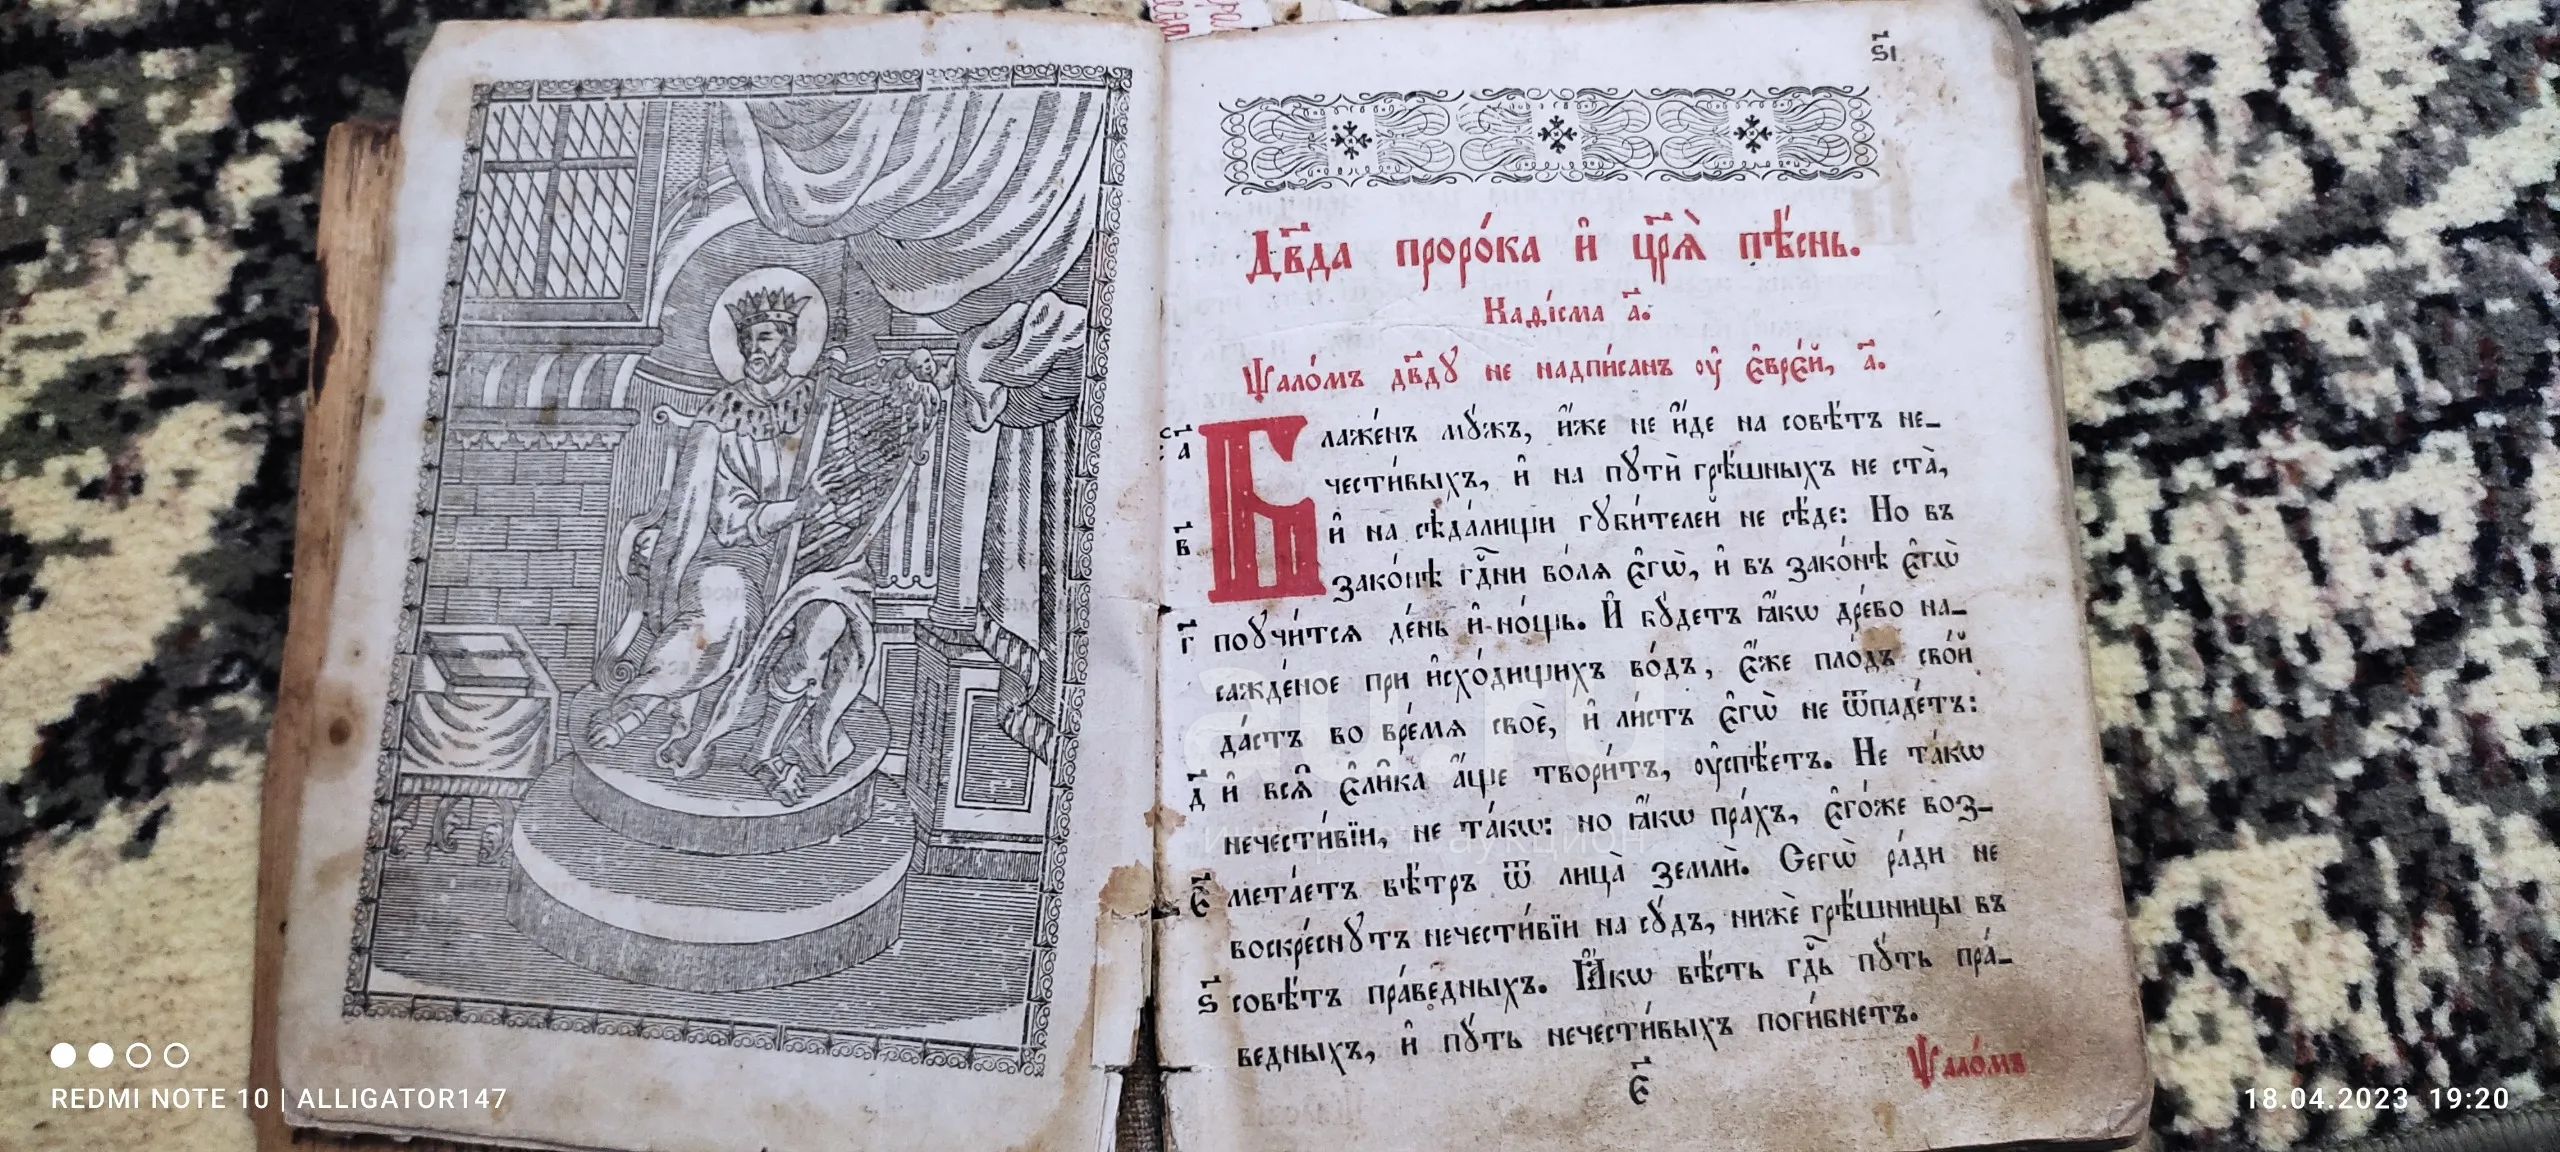 ѕ҃і
Дв҃да проро́ка и҆ цр҃ѧ̀ пѣ́снь.
Каѳі́сма а҃.
Ѱало́мъ дв҃дꙋ не надпи́санъ ᲂу҆ є҆врє́й, а҃.
а҃
Блаже́нъ мꙋ́жъ, и҆́же не и҆́де на совѣ́тъ не-
чести́выхъ, и҆ на пꙋтѝ грѣ́шныхъ не ста̀,
в҃
и҆ на сѣда́лищи гꙋби́телей не сѣ́де: Но въ
зако́нѣ гд҇ни во́лѧ є҆гѡ̀, и҆ въ зако́нѣ є҆гѡ̀
г҃ поꙋчи́тсѧ де́нь и҆ но́щь. И҆ бꙋ́детъ ꙗ҆́кѡ дре́во на-
сажде́ное при и҆схо́дищихъ во́дъ, є҆́же пло́дъ сво́й
да́стъ во вре́мѧ своѐ, и҆ ли́стъ є҆гѡ̀ не ѿпаде́тъ:
д҃ и҆ всѧ̑ є҆ли̑ка а҆́ще твори́тъ, ᲂу҆спѣ́етъ. Не та́кѡ
нечести́вїи, не та́кѡ: но ꙗ҆́кѡ пра́хъ, є҆го́же воз-
є҃ мета́етъ вѣ́тръ ѿ лица̀ землѝ. Сегѡ̀ ра́ди не
воскре́снꙋтъ нечести́вїи на сꙋ́дъ, нижѐ грѣ́шницы въ
ѕ҃ совѣ́тъ пра́ведныхъ. Ꙗ҆́кѡ вѣ́сть гд҇ь пꙋ́ть пра́-
ведныхъ, и҆ пꙋ́ть нечести́выхъ поги́бнетъ.
є҃
Ѱало́мъ
au.ru
интернет аукцион
REDMI NOTE 10 | ALLIGATOR147
18.04.2023 19:20